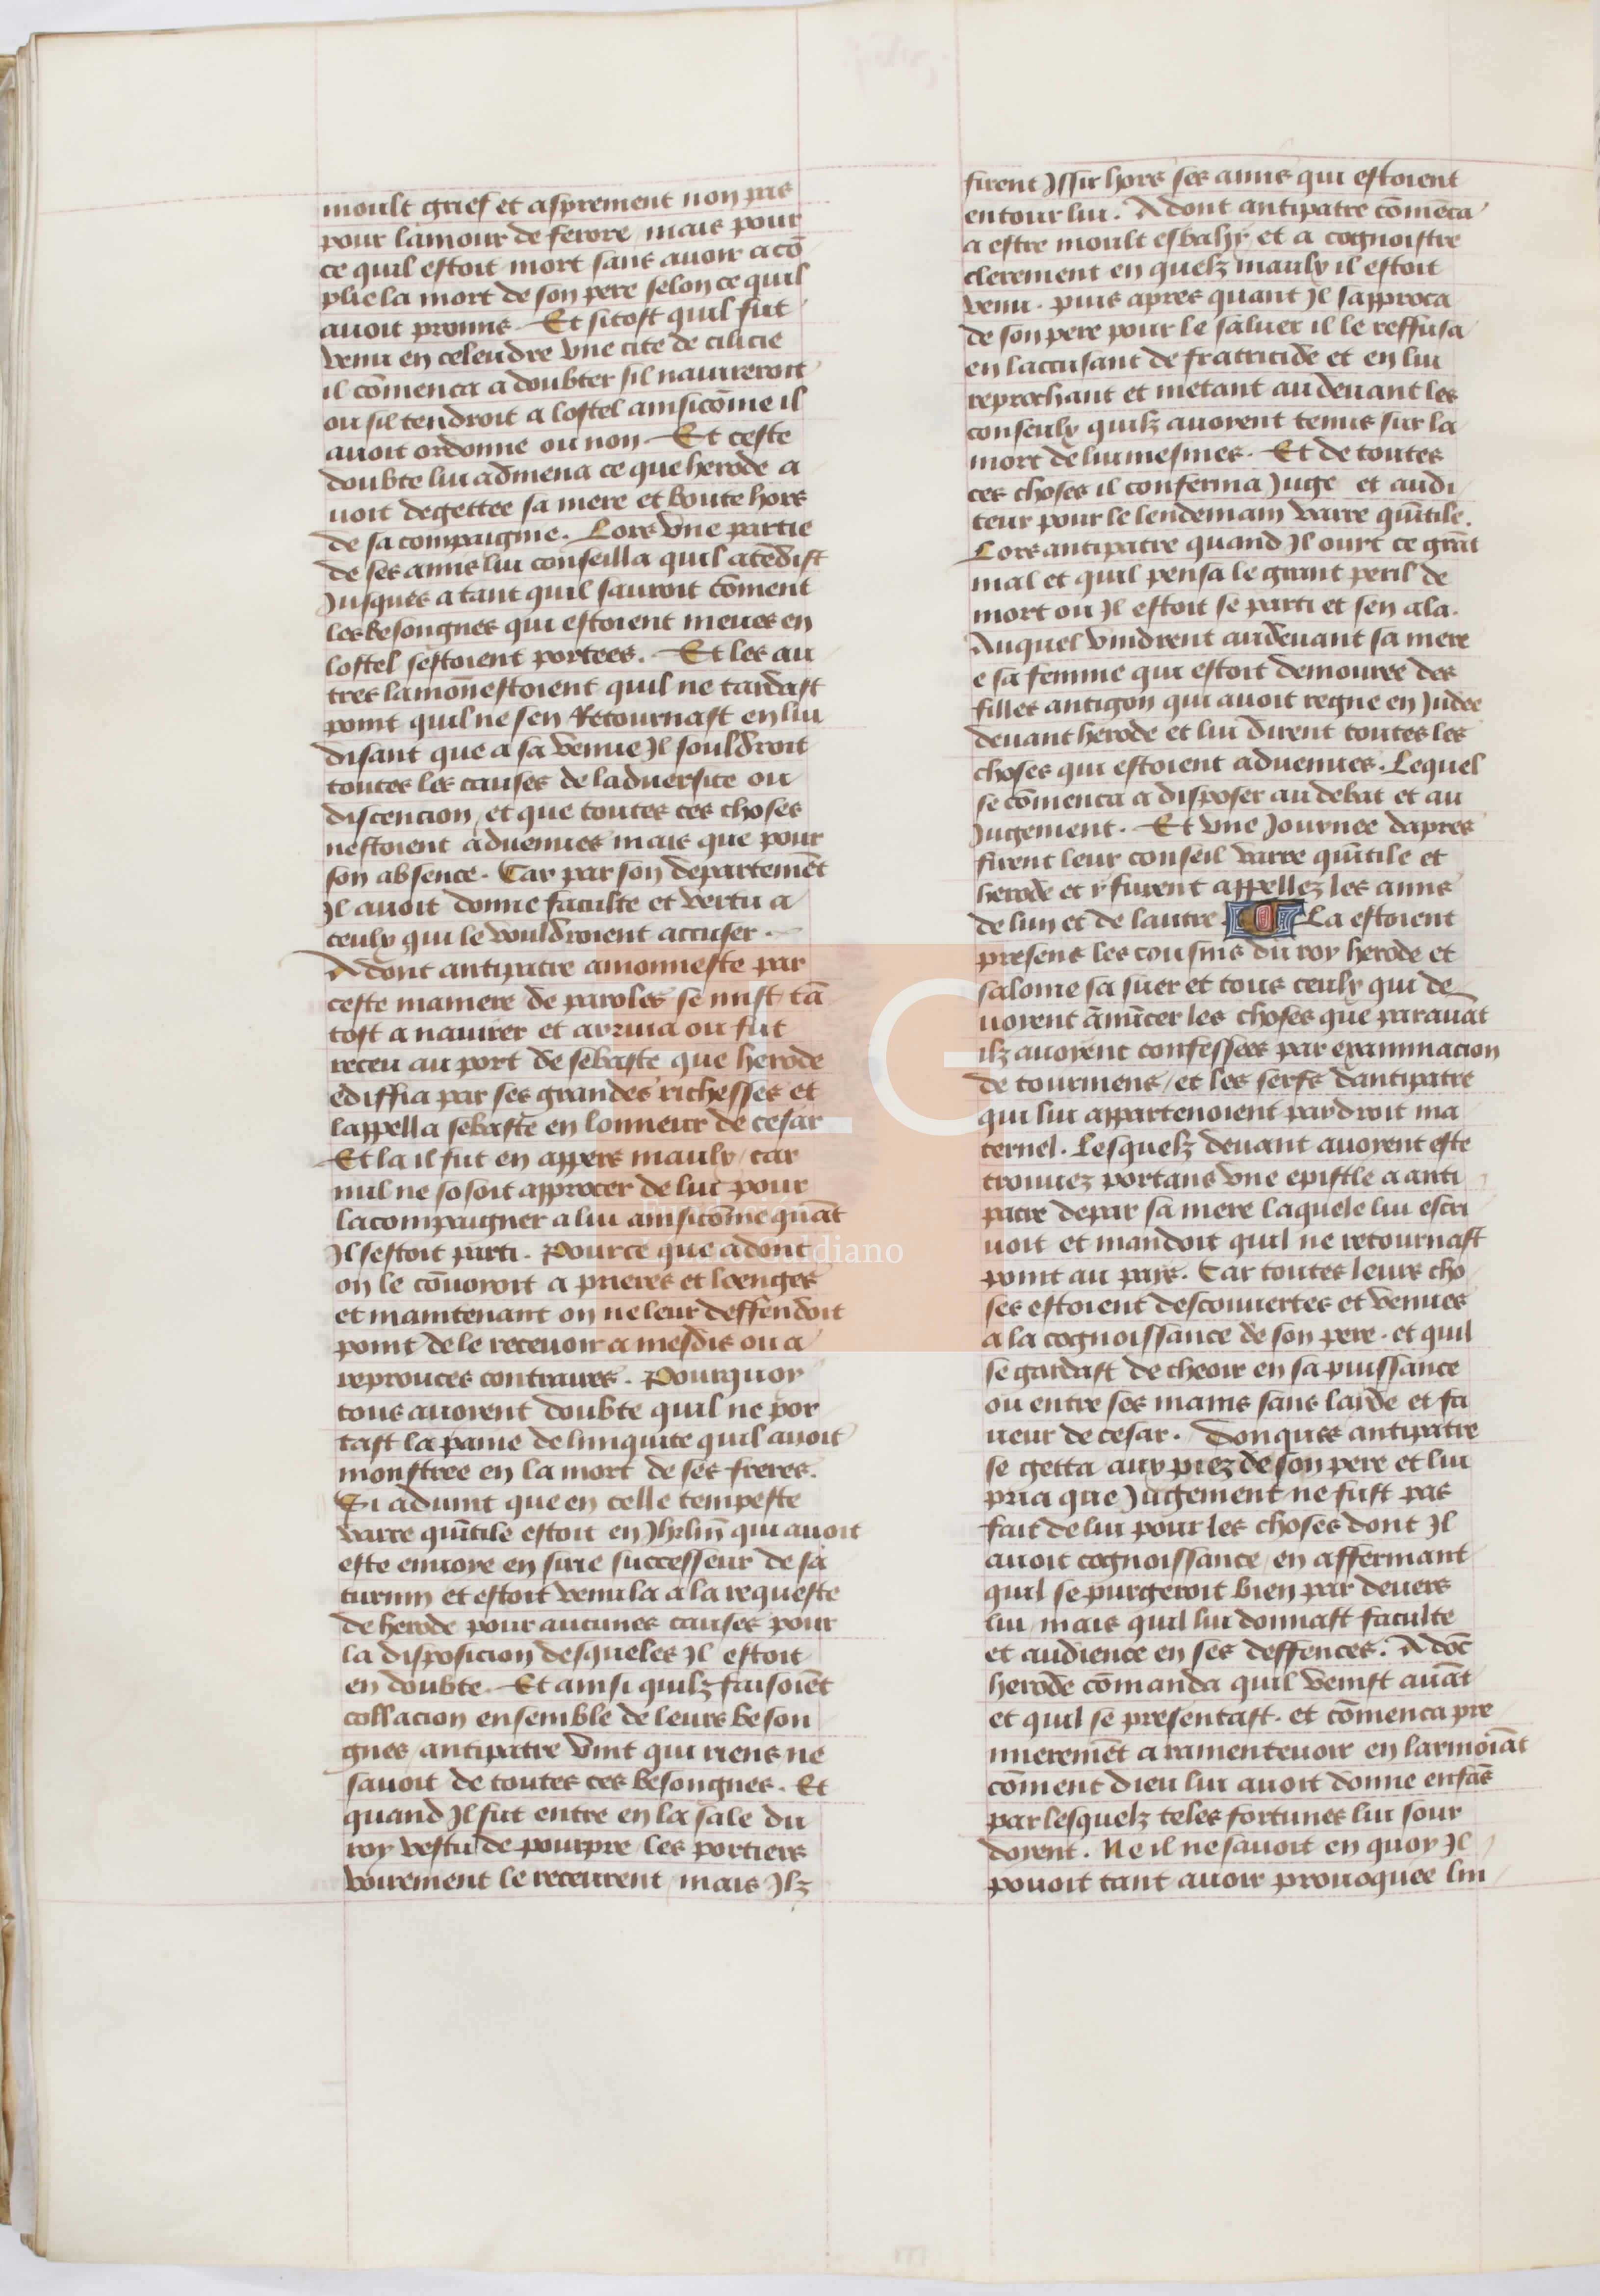 moult grief et asprement non pas
pour lamour de ferore / mais pour
ce quil estoit mort sans auoir acō
plie la mort de son pere selon ce quil
auoit promis. Et sitost quil fut
venu en celendre vne cite de cilicie
il cōmenca a doubter sil nauireroit
ou sil tendroit a lostel ainsicōme il
auoit ordonne ou non. Et ceste
doubte lui admena ce que herode a
uoit degettee sa mere et boute hors
de sa compaignie. Lors vne partie
de ses amis lui conseilla quil atēdist
Jusques a tant quil sauroit cōment
les besongnes qui estoient meues en
lostel sestoient portees. Et les au
tres lamōnestoient quil ne tardast
point quil ne sen Retournast en lui
disant que a sa venue Il souldroit
toutes les causes de laduersite ou
discencion / et que toutes ces choses
nestoient aduenues mais que pour
son absence. Car par son departemēt
Il auoit donne faculte et vertu a
ceulx qui le vouldroient accuser.
Adont antipatre amonneste par
ceste maniere de paroles se mist tā
tost a nauirer et arriua ou fut
receu au port de sebaste que herode
ediffia par ses grandes richesses et
lappella sebaste en lonneur de cesar
Et la il fut en appers maulx / car
nul ne sosoit approcer de lui pour
lacompaigner a lui ainsicōme quāt
Il sestoit parti. Pource que adont
on le cōuoioit a prieres et loenges
et maintenant on ne leur deffendoit
point de le receuoir a mesdis ou a
reprouces contraires. Pourquoy
tous auoient doubte quil ne por
tast la paine de liniquite quil auoit
monstree en la mort de ses freres.
Si aduint que en celle tempeste
varre quītile estoit en Jhrlm̄ qui auoit
este enuoye en sirie successeur de sa
turnin et estoit venu la a la requeste
de herode pour aucunes causes pour
la disposicion desqueles Il estoit
en doubte. Et ainsi quilz faisoiēt
collacion ensemble de leurs beson
gnes / antipatre vint qui riens ne
sauoit de toutes ces besongnes. Et
quand Il fut entre en la sale du
roy vestu de pourpre / les portiers
voirement le receurent / mais Ilz
firent Issir hors ses amis qui estoient
entour lui. Adont antipatre cōmēca
a estre moult esbahy / et a cognoistre
clerement en quelz maulx il estoit
venu. puis apres quant Il sapproca
de son pere pour le saluer il le reffusa
en laccusant de fratricide et en lui
reprochant et metant au deuant les
conseulx quilz auoient tenus sur la
mort de lui mesmes. Et de toutes
ces choses il conferma Juge et audi
teur pour le lendemain varre quītile.
Lors antipatre quand Il ourt ce grāt
mal et quil pensa le grant peril de
mort ou Il estoit se parti et sen ala.
Auquel vindrent audeuant sa mere
e sa femme qui estoit demouree des
filles antigon qui auoit regne en Judee
deuant herode et lui dirent toutes les
choses qui estoient aduenues. Lequel
se cōmenca a disposer au debat et au
Jugement. Et vne Journee dapres
firent leur conseil varre quītile et
herode et y furent appellez les amis
de lun et de lautre. La estoient
presens les cousins du roy herode et
salome sa suer et tous ceulx qui de
uoient ānūcer les choses que parauāt
ilz auoyent confessees par examinacion
de tourmens / et les serfs dantipatre
qui lui appartenoient par droit ma
ternel. Lesquelz deuant auoyent este
trouuez portans vne epistle a anti
patre depar sa mere laquele lui escri
uoit et mandoit quil ne retournast
point au pays. Car toutes leurs cho
ses estoient descouuertes et venues
a la cognoissance de son pere. et quil
se gardast de cheoir en sa puissance
ou entre ses mains sans laide et fa
ueur de cesar. Donques antipatre
se getta aux piez de son pere et lui
pria que Jugement ne fust pas
fait de lui pour les choses dont Il
auoit cognoissance / en affermant
quil se purgeroit bien par deuers
lui / mais quil lui donnast faculte
et audience en ses deffences. Adōc
herode cōmanda quil venist auāt
et quil se presentast. et cōmenca pre
mieremēt a ramenteuoir en larmoiāt
cōment dieu lui auoit donne enfās
par lesquelz teles fortunes lui sour
doyent. Ne il ne sauoit en quoy Il
pouoit tant auoir prouoquee lui
LG
Lázaro Galdiano